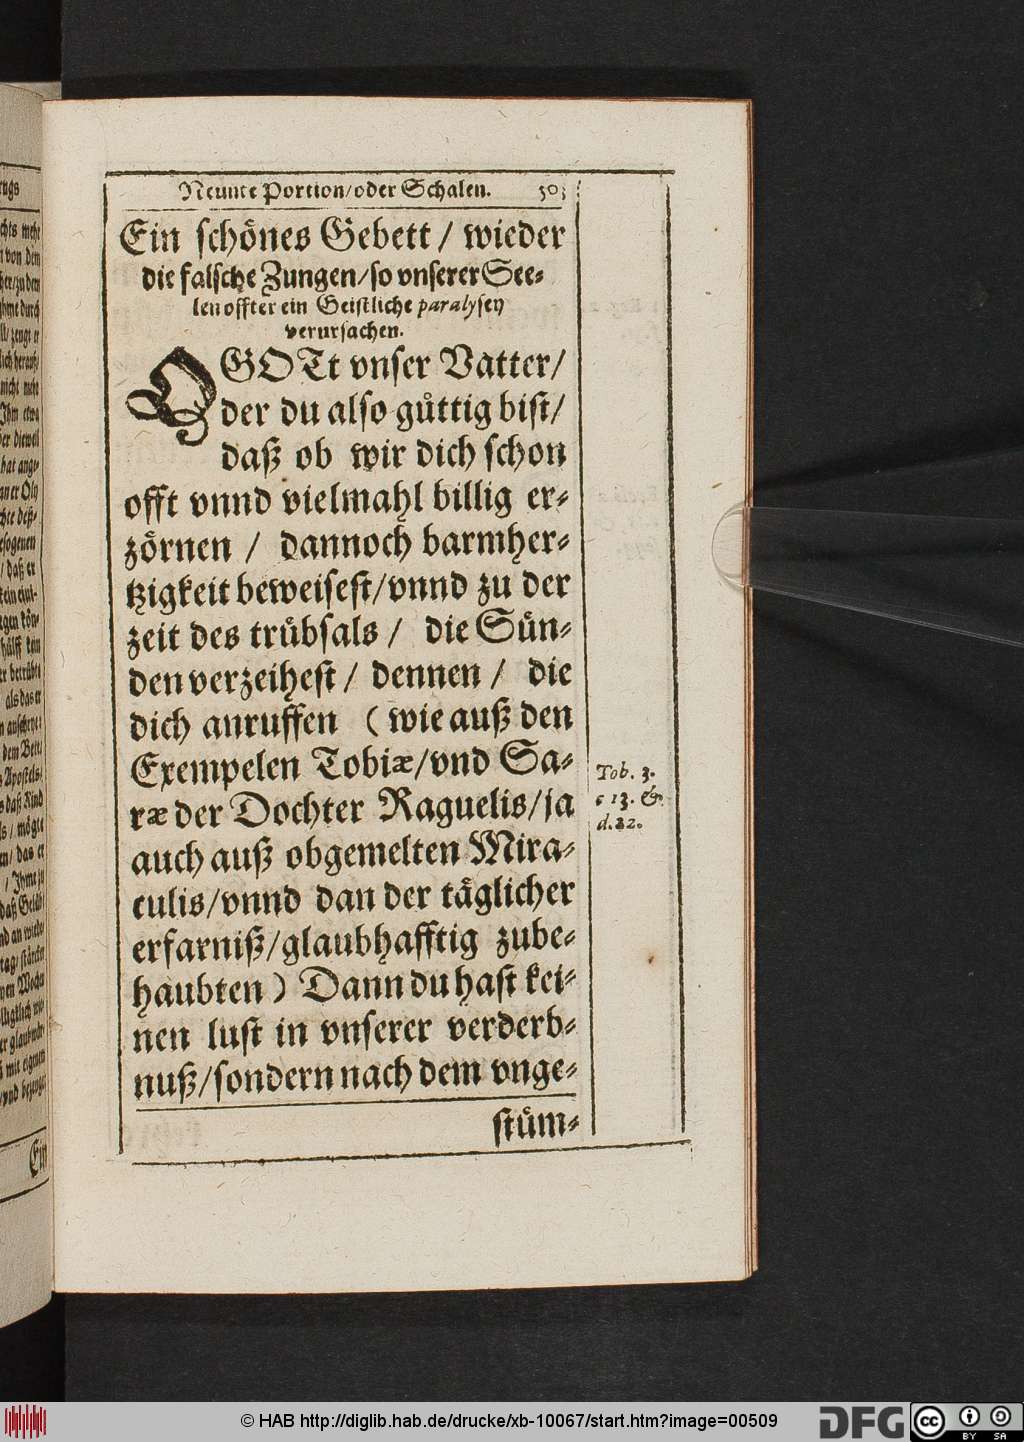 Neunte Portion/oder Schalen. 303
Ein schönes Gebett / wieder
die falsche Zungen/so vnserer See⸗
len offter ein Geistliche paralysey
verursachen.
O GOTt vnser Vatter/
der du also güttig bist/
daß ob wir dich schon
offt vnnd vielmahl billig er⸗
zörnen / dannoch barmher⸗
tzigkeit beweisest/vnnd zu der
zeit des trübsals / die Sün⸗
den verzeihest / dennen / die
dich anruffen (wie auß den
Exempelen Tobiæ/vnd Sa⸗
ræ der Dochter Raguelis/ja
auch auß obgemelten Mira⸗
culis/vnnd dan der täglicher
erfarniß/glaubhafftig zube⸗
haubten) Dann du hast kei⸗
nen lust in vnserer verderb⸗
nuß/sondern nach dem vnge⸗
stüm⸗
Tob. 3.
c 13. &
d. 22.
Ein
© HAB http://diglib.hab.de/drucke/xb-10067/start.htm?image=00509
DFG
cc
BY SA